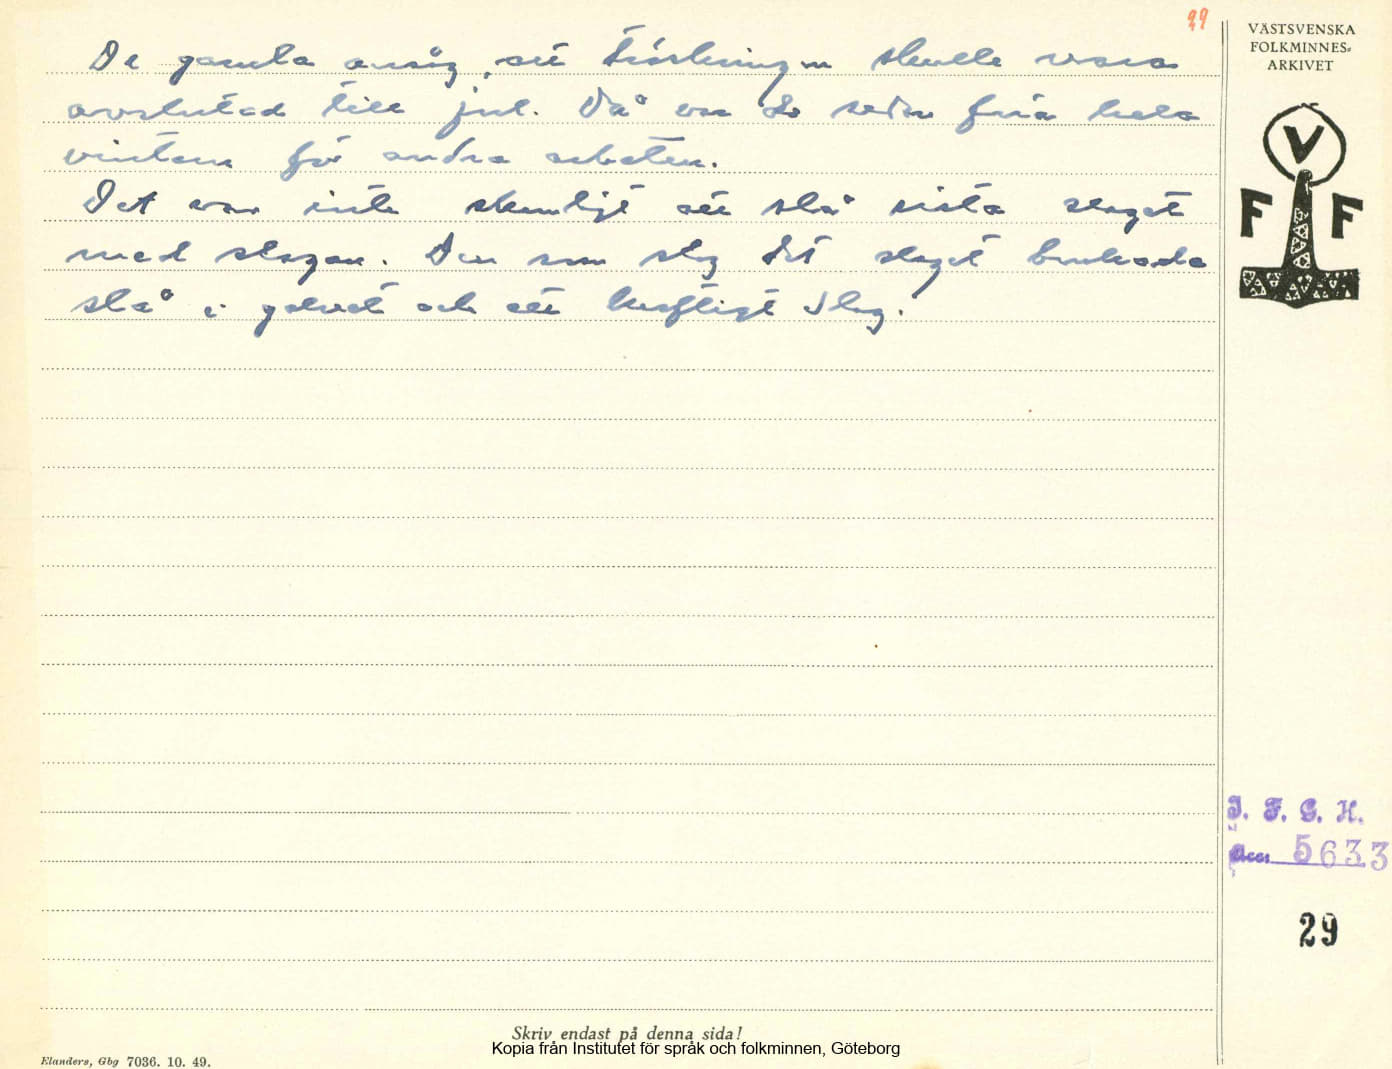 29
VÄSTSVENSKA
FOLKMINNES-
ARKIVET
De gamla ansåg, att tröskningen skulle vara
avslutad till jul. Då var de sedan fria hela
vintern för andra arbeten.
Det var inte skamligt att slå sista slaget
med slagan. Den som slog det slaget brukade
slå i golvet och ett kraftigt slag.
V
F F
I. F. G. H.
Acc: 5633
29
Skriv endast på denna sida!
Kopia från Institutet för språk och folkminnen, Göteborg
Elanders, Gbg 7036. 10. 49.